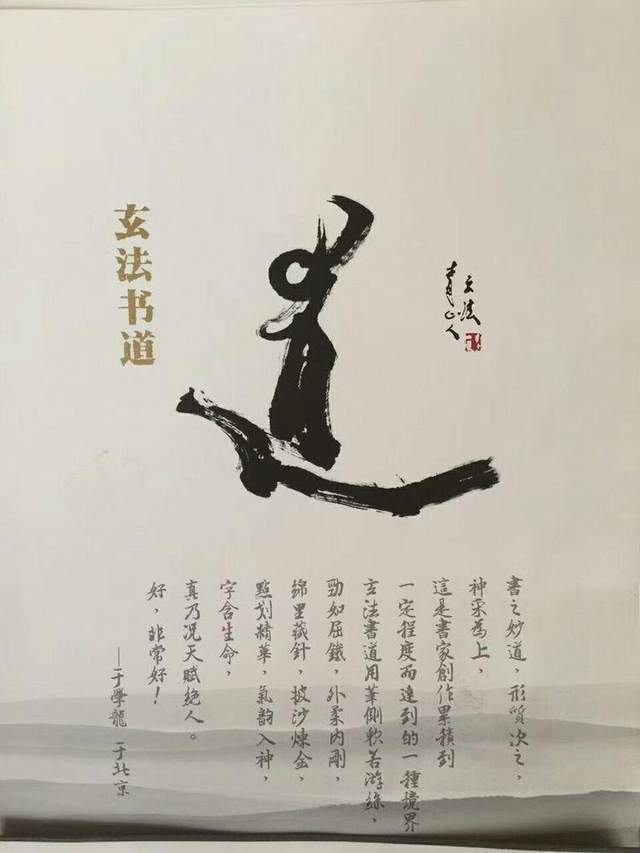 玄法
青山人
道
玄法书道
書之妙道，形質次之，
神采為上，
這是書家創作累積到
一定程度而達到的一種境界
玄法書道用筆側軟若游絲，
勁如屈鐵，外柔内剛，
綿里藏針，披沙煉金，
點划精華，氣韵入神，
字含生命，
真乃况天賦绝人。
好，非常好！
——于學龍 于北京